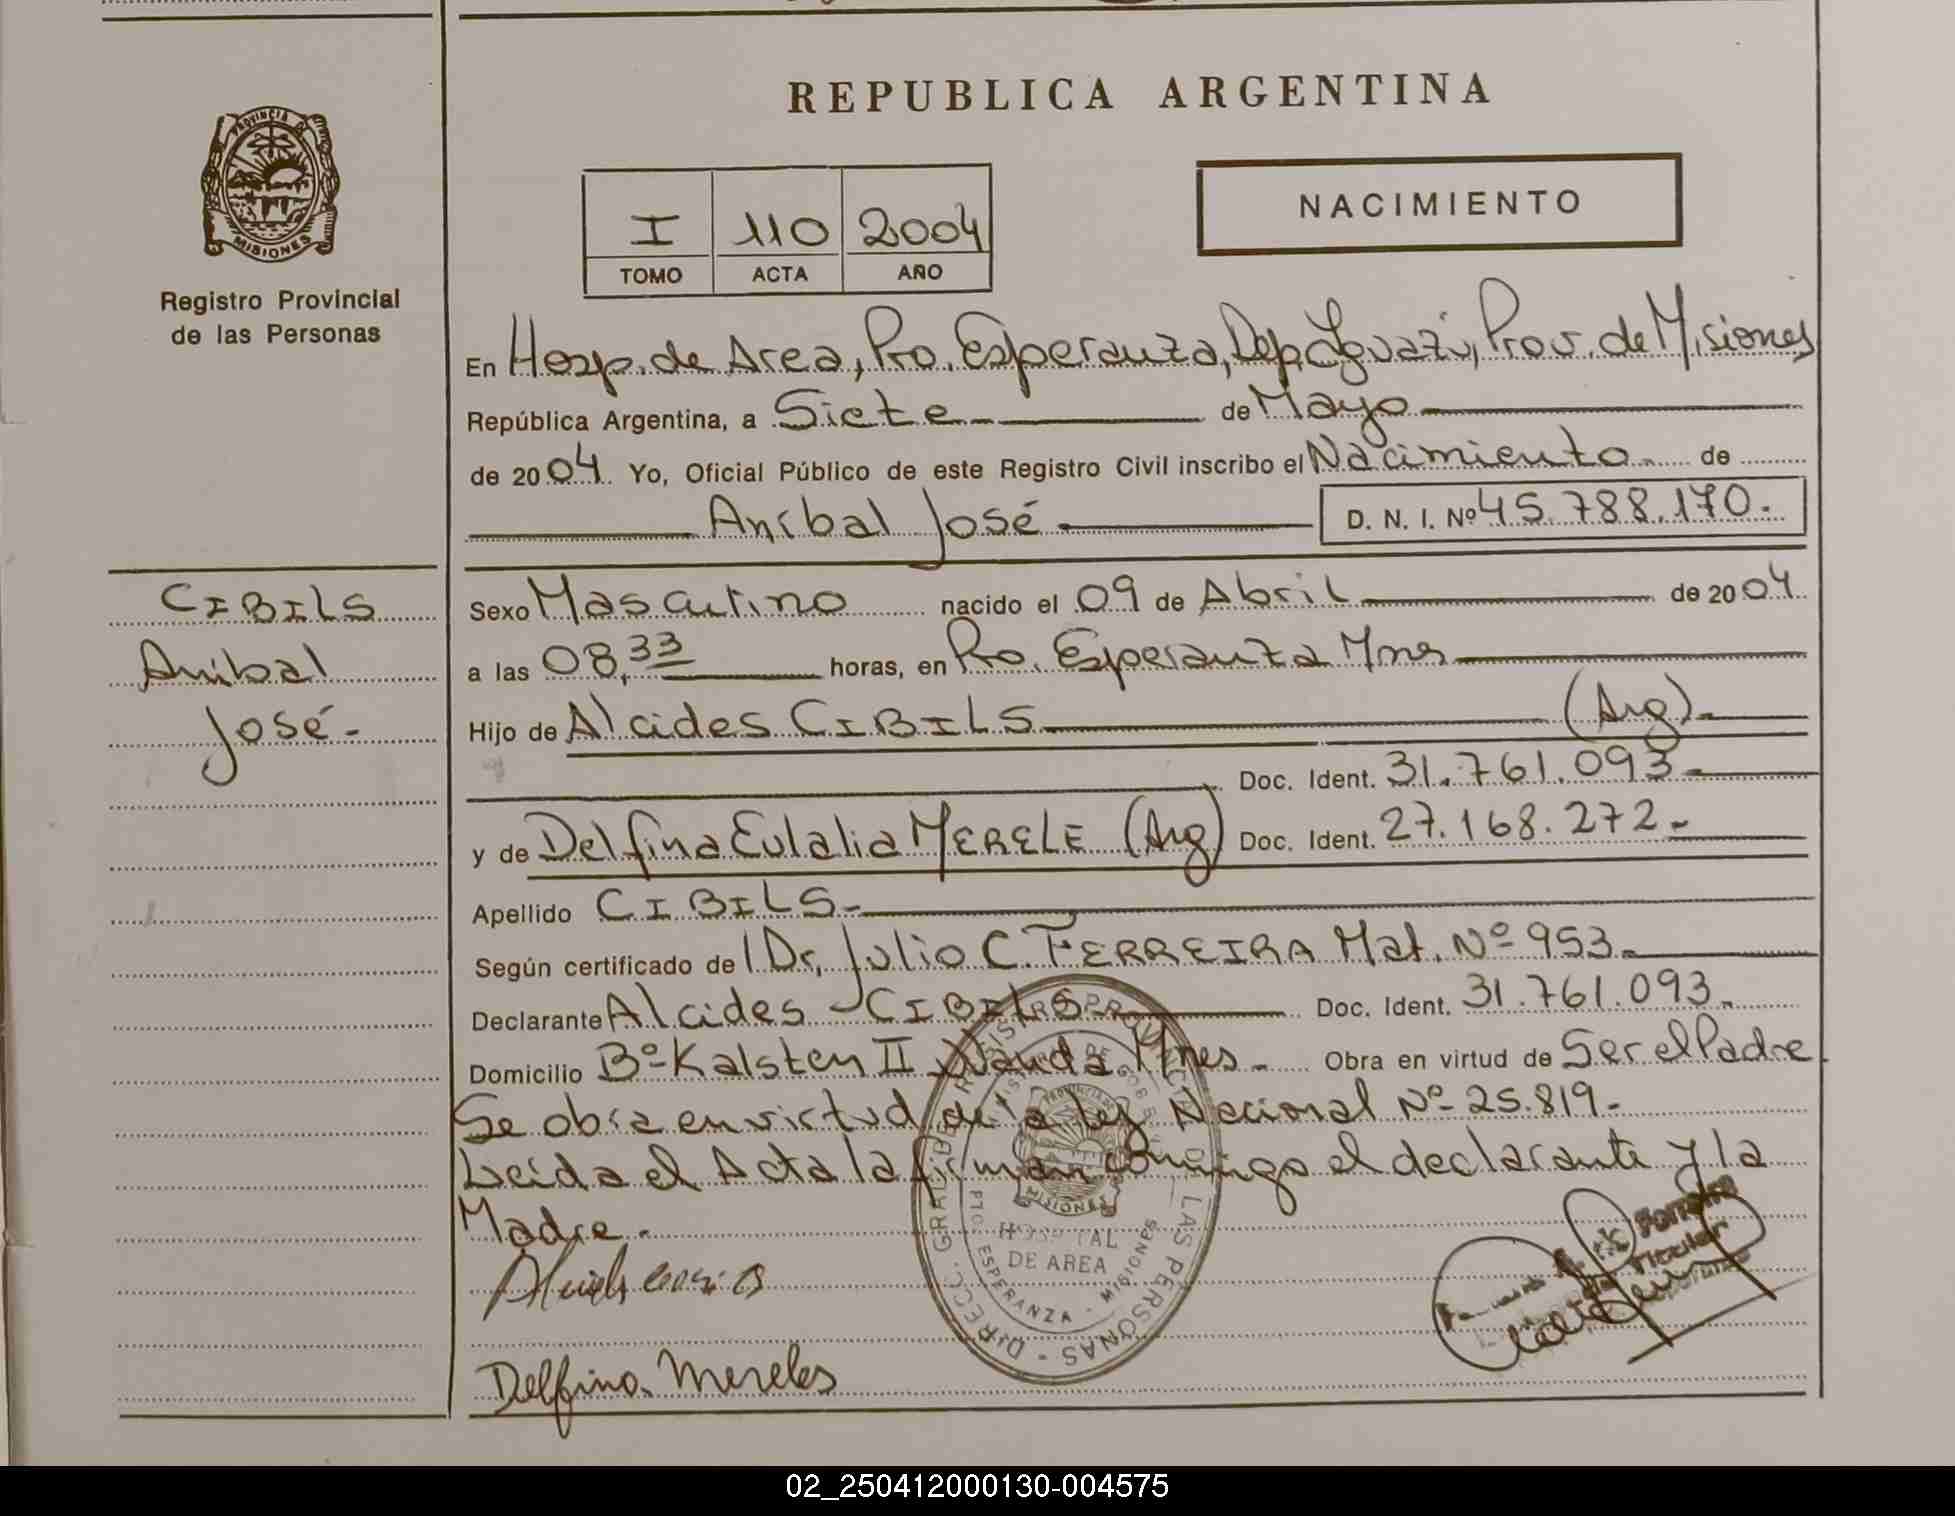 REPUBLICA ARGENTINA
PROVINCIA DE
MISIONES
Registro Provincial
de las Personas
I 110 2004
TOMO ACTA AÑO
NACIMIENTO
En Hosp. de Area, Pto. Esperanza, Dep. Iguazú, Prov. de Misiones
República Argentina, a Siete de Mayo
de 2004 Yo, Oficial Público de este Registro Civil inscribo el Nacimiento de
Aníbal José D. N. I. Nº 45.788.170.-
CIBILS
Aníbal
José.-
Sexo Masculino nacido el 09 de Abril de 2004
a las 08,33 horas, en Pto. Esperanza Mnes
Hijo de Alcides CIBILS (Arg).-
Doc. Ident. 31.761.093.-
y de Delfina Eulalia MERELE (Arg) Doc. Ident. 27.168.272.-
Apellido CIBILS.-
Según certificado del Dr. Julio C. FERREIRA Mat. Nº 953.-
Declarante Alcides CIBILS Doc. Ident. 31.761.093.-
Domicilio Bº Kalsten II Wanda Mnes.- Obra en virtud de Ser el Padre
Se obra en virtud de la ley Nacional Nº 25.819.-
Leida el Acta la firman conmigo el declarante y la
Madre.-
DIRECC. GRAL. DE REGISTRO PROVINCIAL DE LAS PERSONAS
HOSPITAL
DE AREA
PTO. ESPERANZA - MISIONES
Delfina Mereles
Titular
02_250412000130-004575